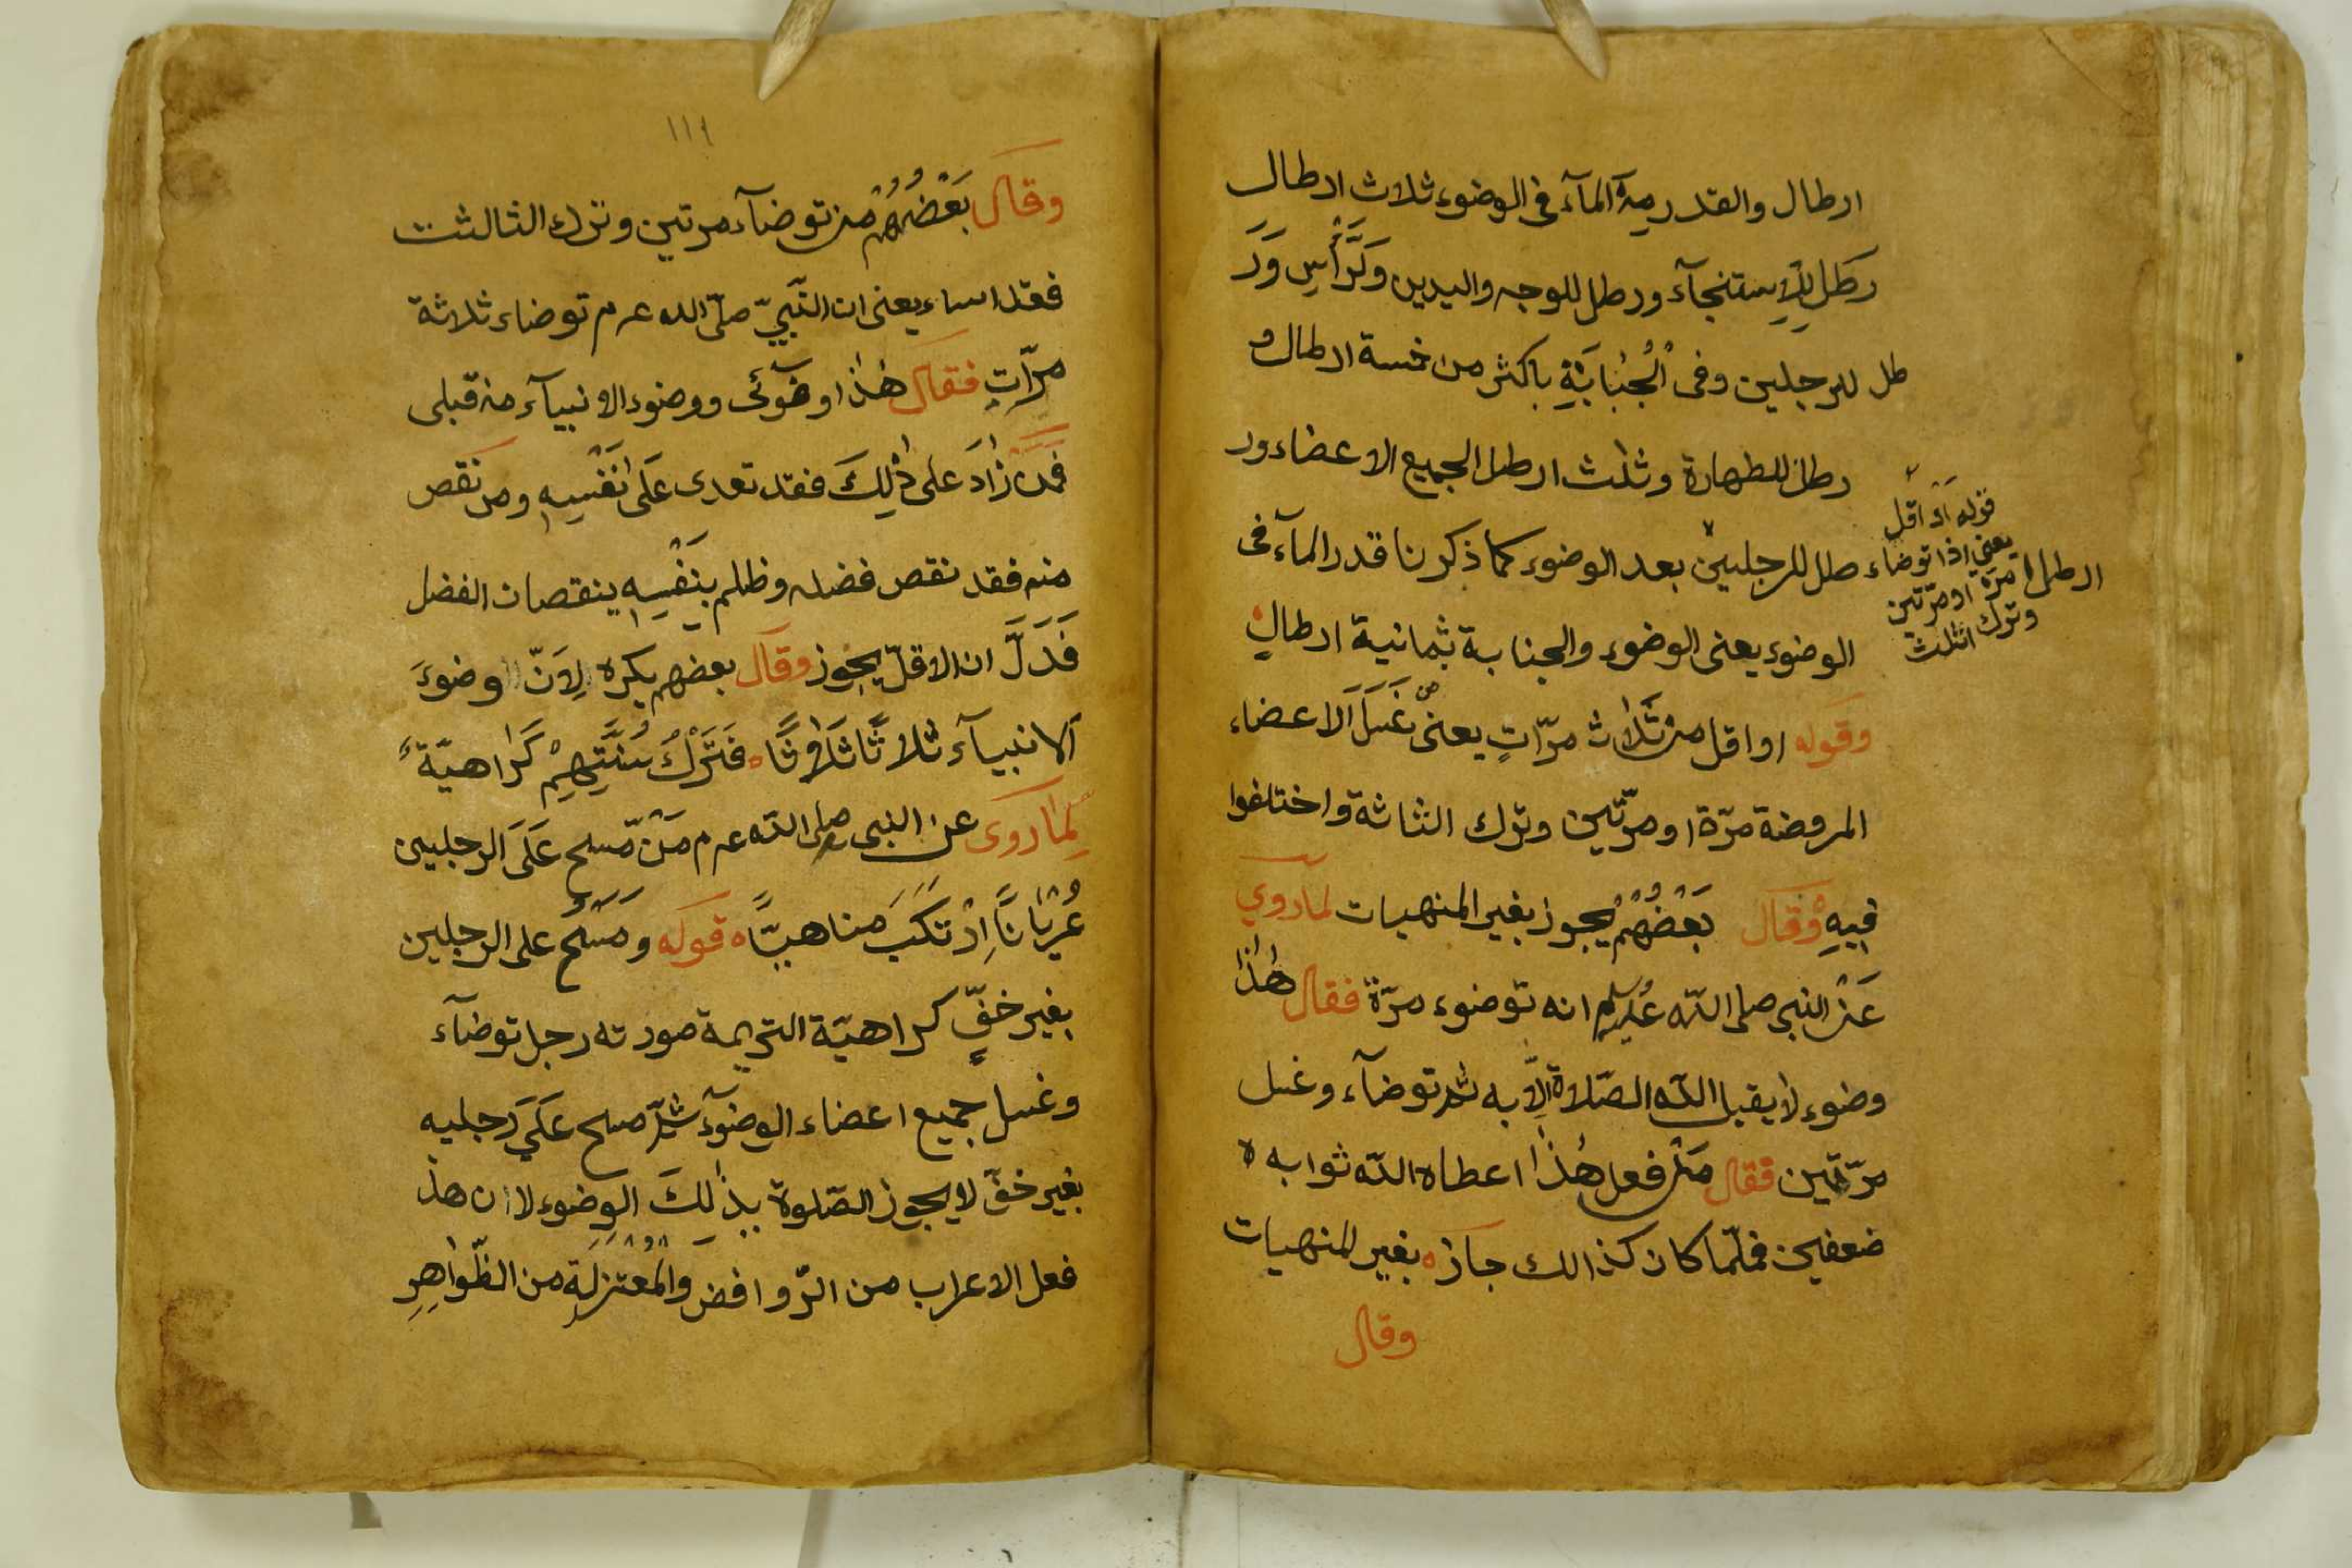 ارطال والقدر من المآء فى الوضوء ثلاث ارطال
رطل لِلاِستنجآء ورطل للوجه واليدين وَالرَّأْسِ وَرَ
طل للرجلين وفى الْجُنَابَةِ باكثر من خمسة ارطال و
رطل للطهارة وثلث ارطل لجميع الاعضاء ور
طل للرجلين بعد الوضوء كما ذكرنا قدر المآء فى
الوضوء يعنى الوضوء والجنابة بثمانية ارطالٍ
وقوله او اقل من ثَلٰاث مرّاتٍ يعنى غَسَلَ الاعضاء
المروضة مرّة او مرّتين وترك الثاثة واختلفوا
فِيهِ وَقَال بَعْضُهُمْ يجوز بغير المنهيات لما روي
عَنْ النبى صلى اللّه عليه انه توضوء مرّة فقال هٰذا
وضوء لا يقبل اللّه الصّلاة اِلّا به ثم توضآء وغسل
مرّتين فقال مَنْ فعل هٰذا اعطاه اللّه ثوابه ه
ضعفين فلمّا كان كذالك جاز ه بغير المنهيات
وقال
قوله او اقل
يعني اذا توضاء
مرّة او مرّتين
وترك الثلث
ارطل
١١١
وقال بَعْضُهُمْ من توضآء مرتين وترك الثالثت
فقد اساء يعنى ان النّبيّ صلّى الله عـم توضاء ثلاثة
مرّاتٍ فقال هٰذا وضوٓئى ووضوء الانبيآء من قبلى
فَمَنْ زٰادَ على ذٰلِكَ فقد تعدى عَلٰى نَفْسِهِ ومن نقص
منه فقد نقص فضله وظلم بِنَفْسِهِ بنقصان الفضل
فَدَلَّ ان الاقلّ يجوز وقال بعضهم يكره لِاَنّ وضوءَ
الانبيآء ثلاثًا ثَلٰاثًا ه فَتَرْكُ سُنَّتِهِمْ كَراهيّة
لِمٰا روى عن النبى صلى اللّه عـم مَنْ مّسح عَلَى الرجليين
عُرْيَانًا اِرْتَكَبَ مناهيًّا ه قوله وَمَسَحَ على الرجلين
بغير خفٍّ كراهيّة التحريمة صورته رجل توضآء
وغسل جميع اعضاء الوضوٓء ثمّ مسح عَلَى رجليه
بغير خفّ لا يجوز الصّلوة بذٰلكَ الوضوء لا ان هذ
فعل الاعراب من الرّوافض والْمُعْتَزِلَةِ من الظّواهِرِ